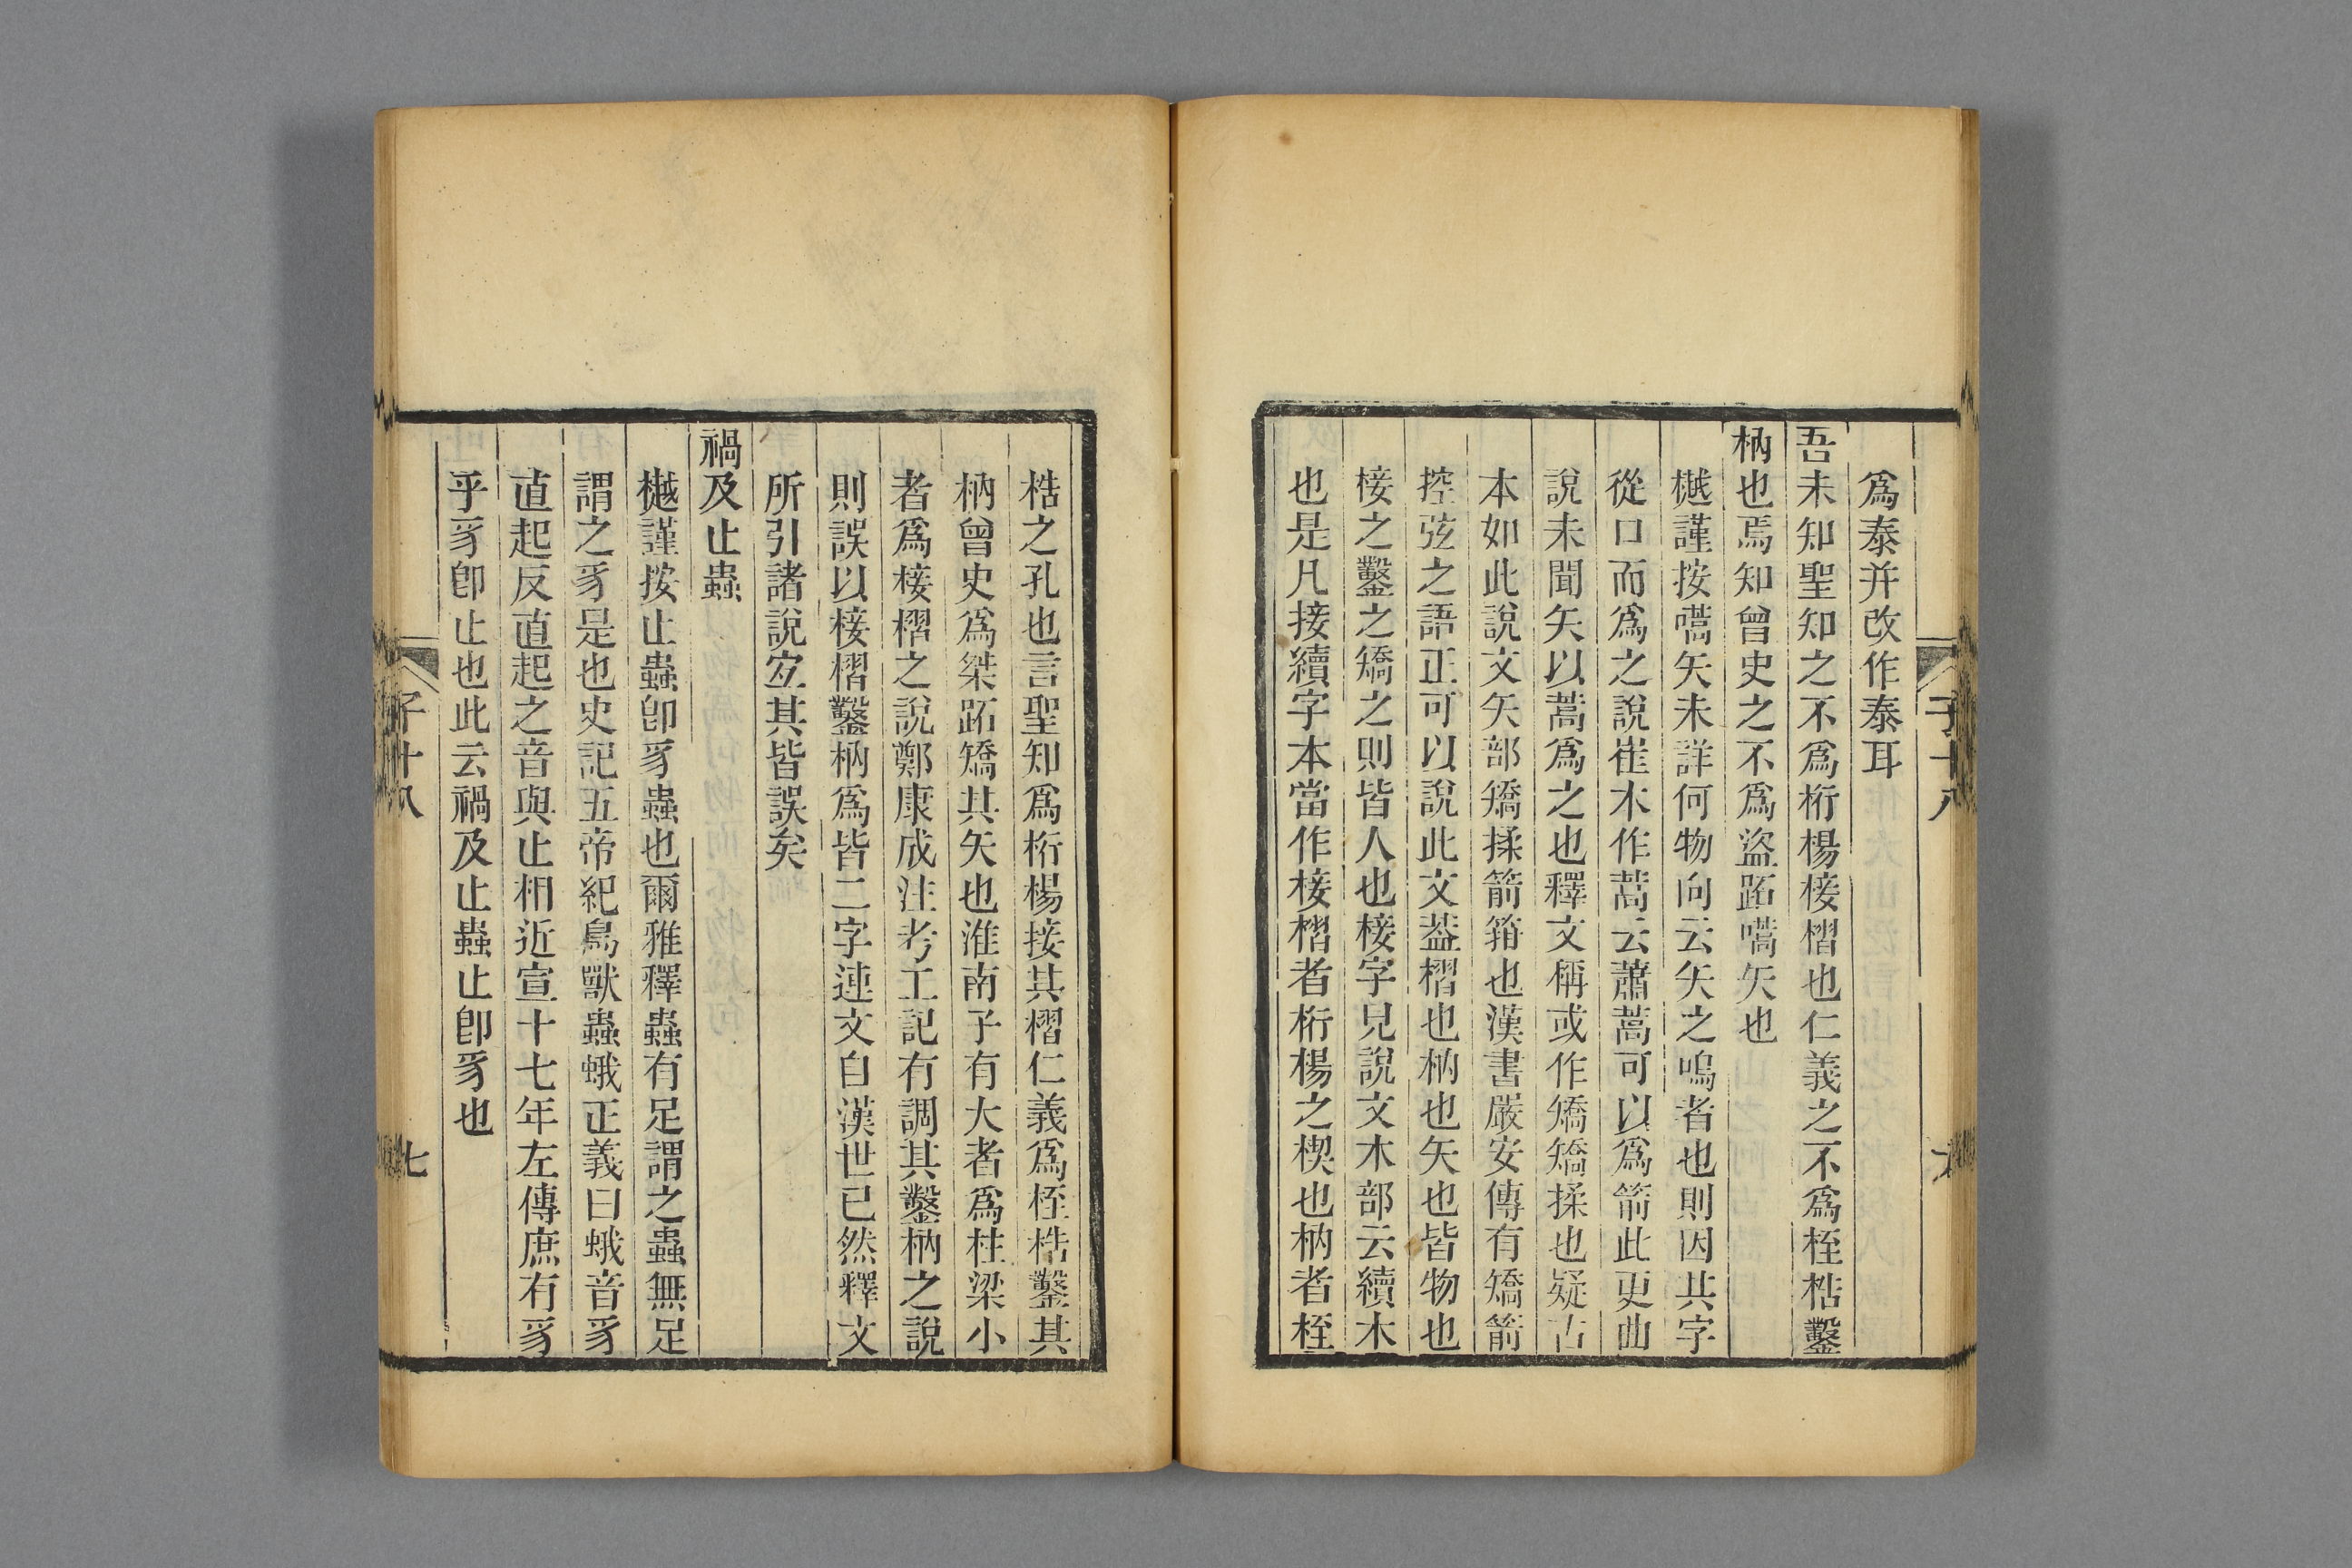 爲泰并改作泰耳
吾未知聖知之不爲桁楊椄槢也仁義之不爲桎梏鑿
枘也焉知曾史之不爲盜跖嚆矢也
樾謹按嚆矢未詳何物向云矢之鳴者也則因其字
從口而爲之說崔本作蒿云蕭蒿可以爲箭此更曲
說未聞矢以蒿爲之也釋文稱或作矯矯揉也疑古
本如此說文矢部矯揉箭箝也漢書嚴安傳有矯箭
控弦之語正可以說此文葢槢也枘也矢也皆物也
椄之鑿之矯之則皆人也椄字見說文木部云續木
也是凡接續字本當作椄槢者桁楊之楔也枘者桎
子十八
六
梏之孔也言聖知爲桁楊接其槢仁義爲桎梏鑿其
枘曾史爲桀跖矯其矢也淮南子有大者爲柱梁小
者爲椄槢之說鄭康成注考工記有調其鑿枘之說
則誤以椄槢鑿枘爲皆二字連文自漢世已然釋文
所引諸說宐其皆誤矣
禍及止蟲
樾謹按止蟲卽豸蟲也爾雅釋蟲有足謂之蟲無足
謂之豸是也史記五帝紀鳥獸蟲蛾正義曰蛾音豸
直起反直起之音與止相近宣十七年左傳庶有豸
乎豸卽止也此云禍及止蟲止卽豸也
子十八
七